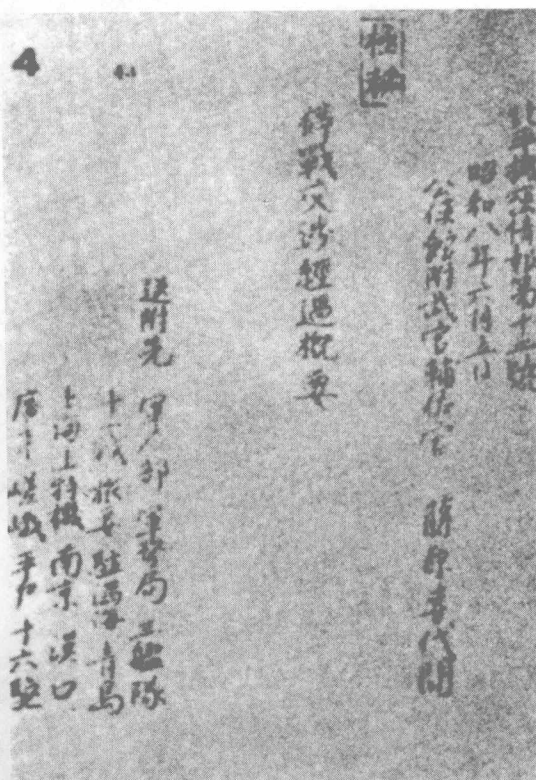 極秘
北平機密情報第十五號
昭和八年六月五日
公使館附武官輔佐官 藤原喜代間
停戰交渉經過概要
送附先 軍令部 軍務局 三艦隊
十一戰 旅要 駐滿海 青島
上海 上特機 南京 漢口
嵯峨 平戶 十六駆
4